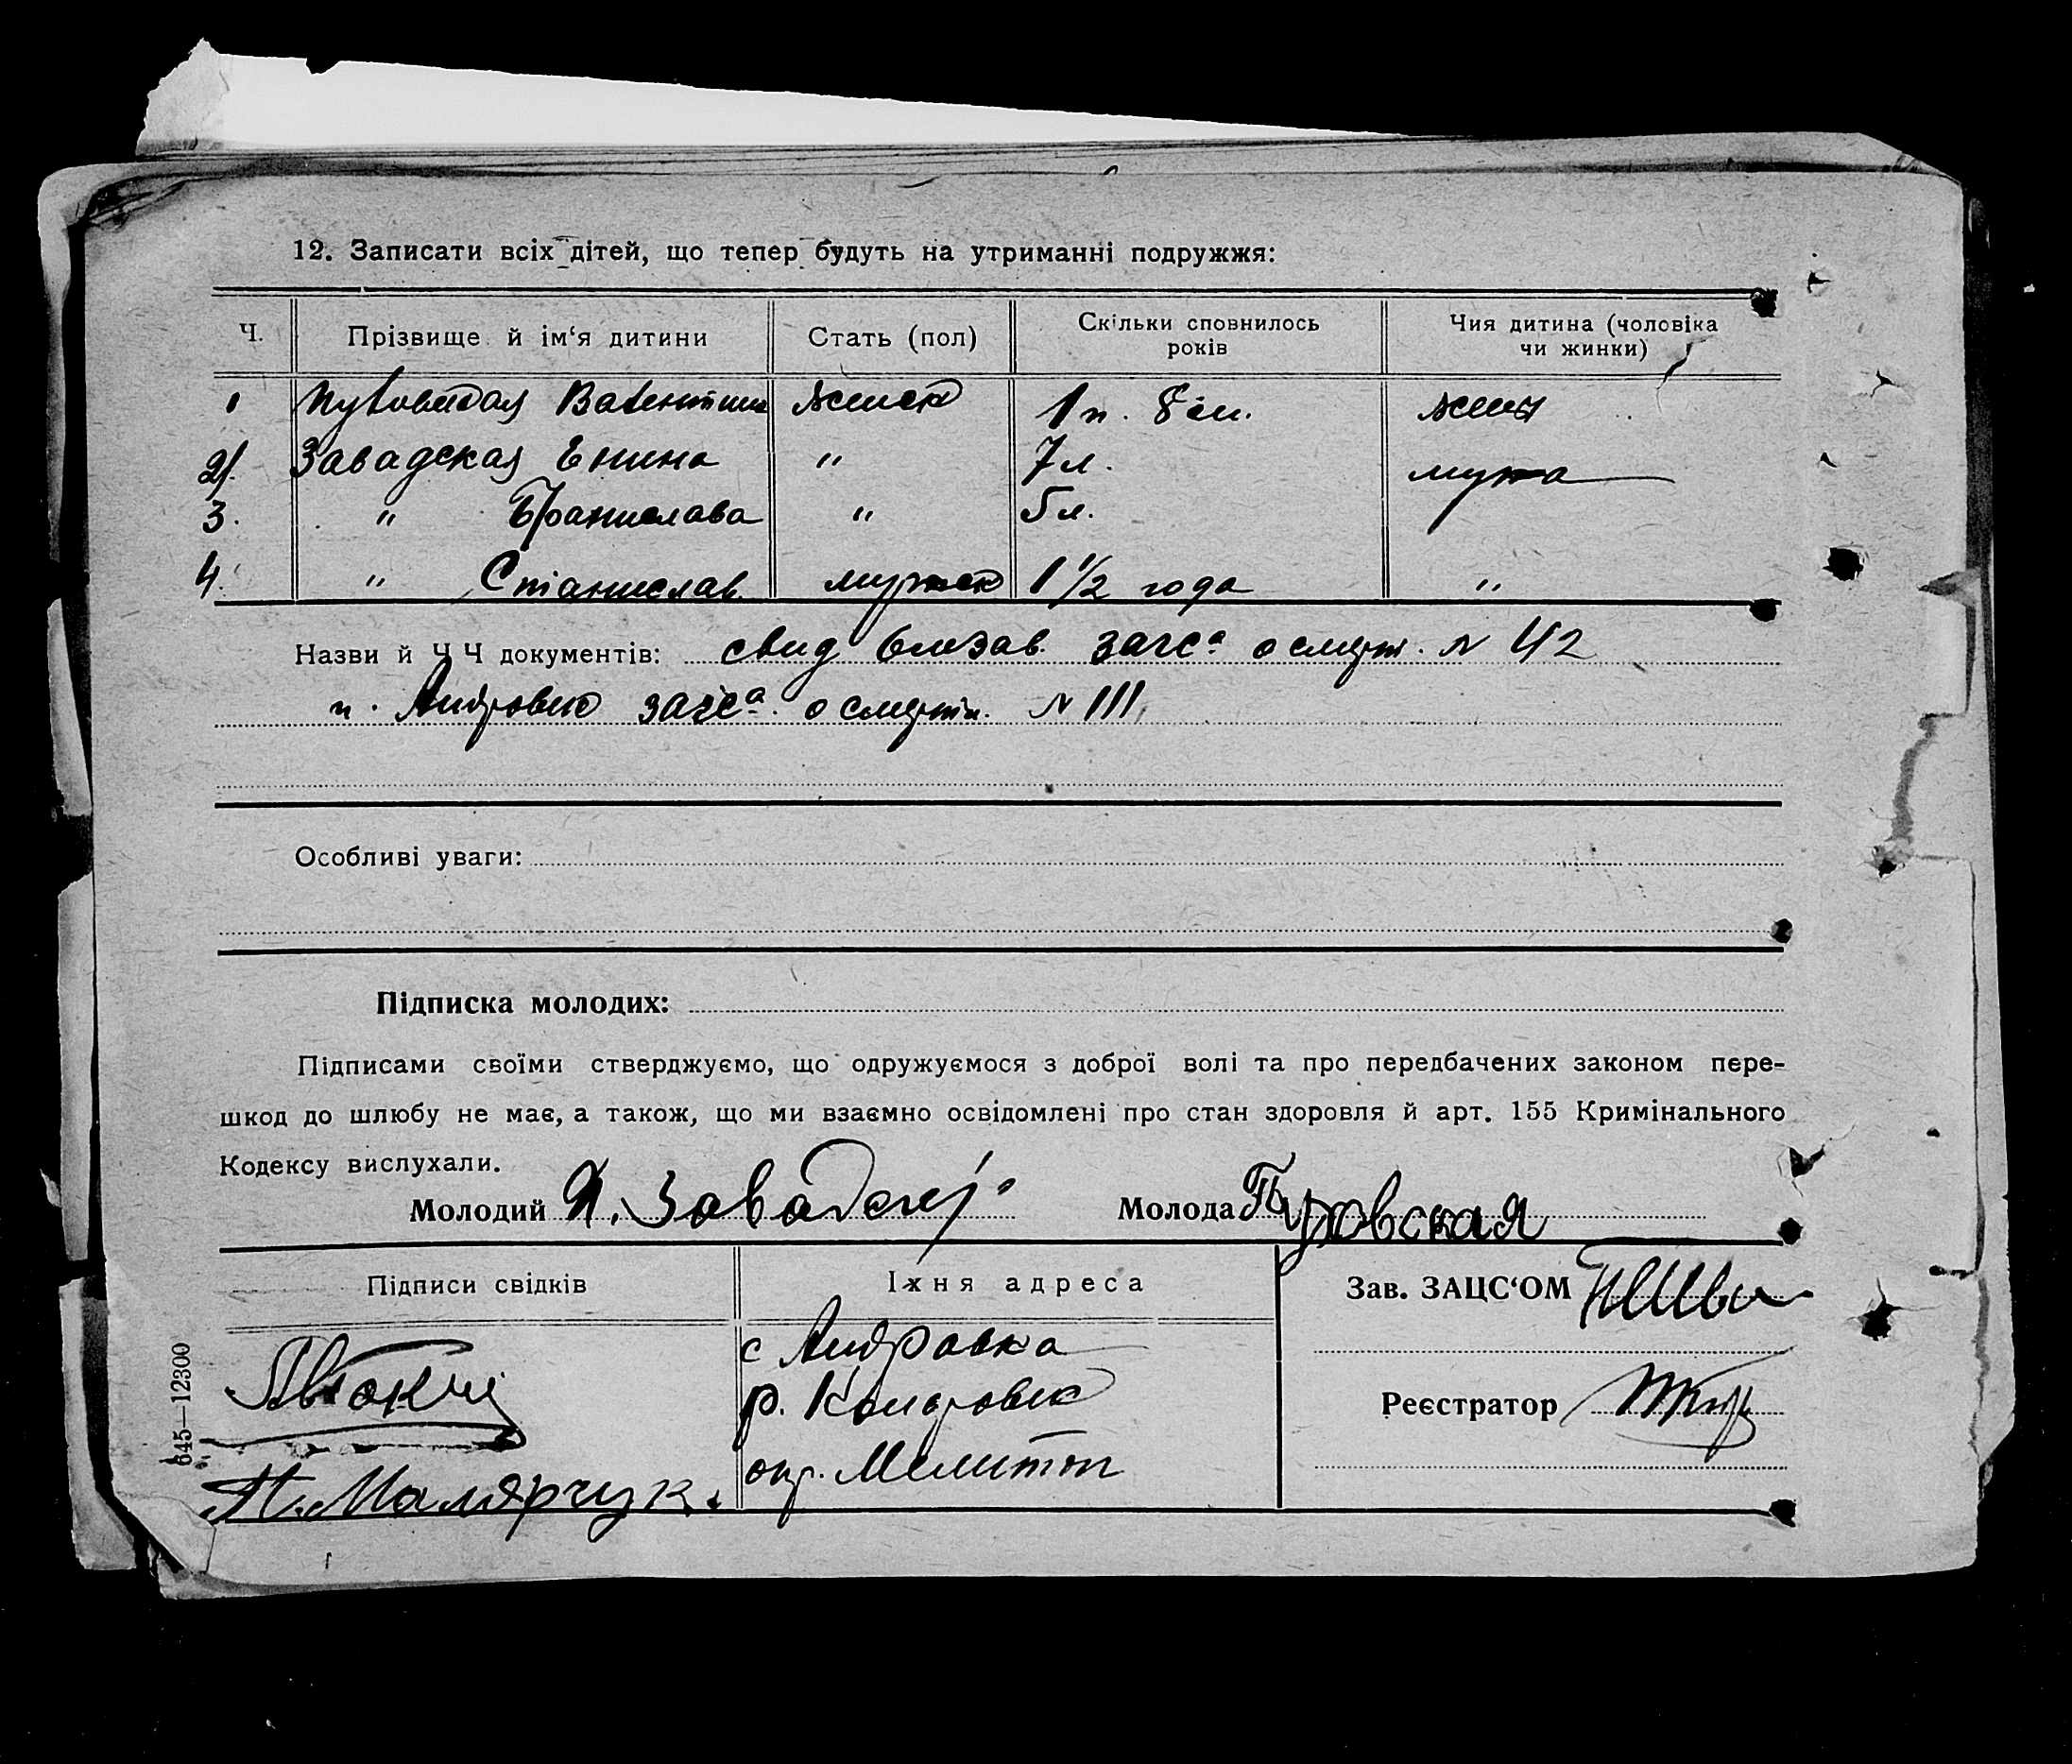 12. Записати всіх дітей, що тепер будуть на утриманні подружжя:
Ч. Прізвище й ім‘я дитини Стать (пол) Скільки сповнилось років Чия дитина (чоловіка чи жинки)
1 женск 1 8
2. Завадская Енина " 7 л. мужа
3. " Бранислава " 5 л.
4. " Станислав мужск 1 1/2 года "
Назви й Ч Ч документів: свид загса о смерт. N 42
и. Андровк загса о смерти N 111
Особливі уваги:
Підписка молодих:
Підписами своїми стверджуємо, що одружуємося з доброї волі та про передбачених законом пере-
шкод до шлюбу не має, а також, що ми взаємно освідомлені про стан здоровля й арт. 155 Кримінального
Кодексу вислухали.
Молодий Молода
Підписи свідків Їхня адреса Зав. ЗАЦС‘ОМ
с Андровка
р.
Реєстратор
окр. Мелитоп
П. Малярчук.
645—12300